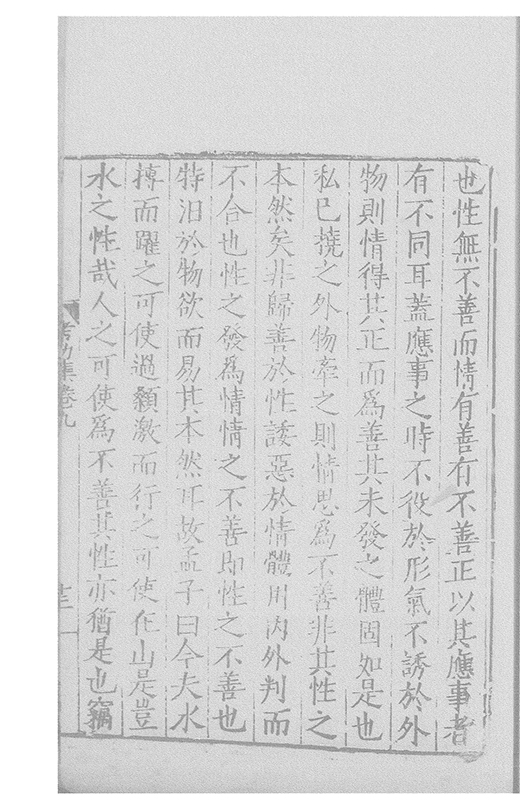 也性無不善而情有善有不善正以其應事者
有不同耳蓋應事之時不役於形氣不誘於外
物則情得其正而為善其未發之體固如是也
私已撓之外物牽之則情思為不善非其性之
本然矣非歸善於性諉惡於情體用内外判而
不合也性之發為情情之不善即性之不善也
特汨於物欲而易其本然耳故孟子曰今夫水
搏而躍之可使過顙激而行之可使在山是豈
水之性哉人之可使為不善其性亦猶是也竊
集卷九